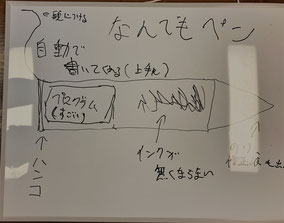 なんでもペン
自動で
書いてくれる(上手に)
プログラム
(すごい)
インクが
無くならない
ハンコ